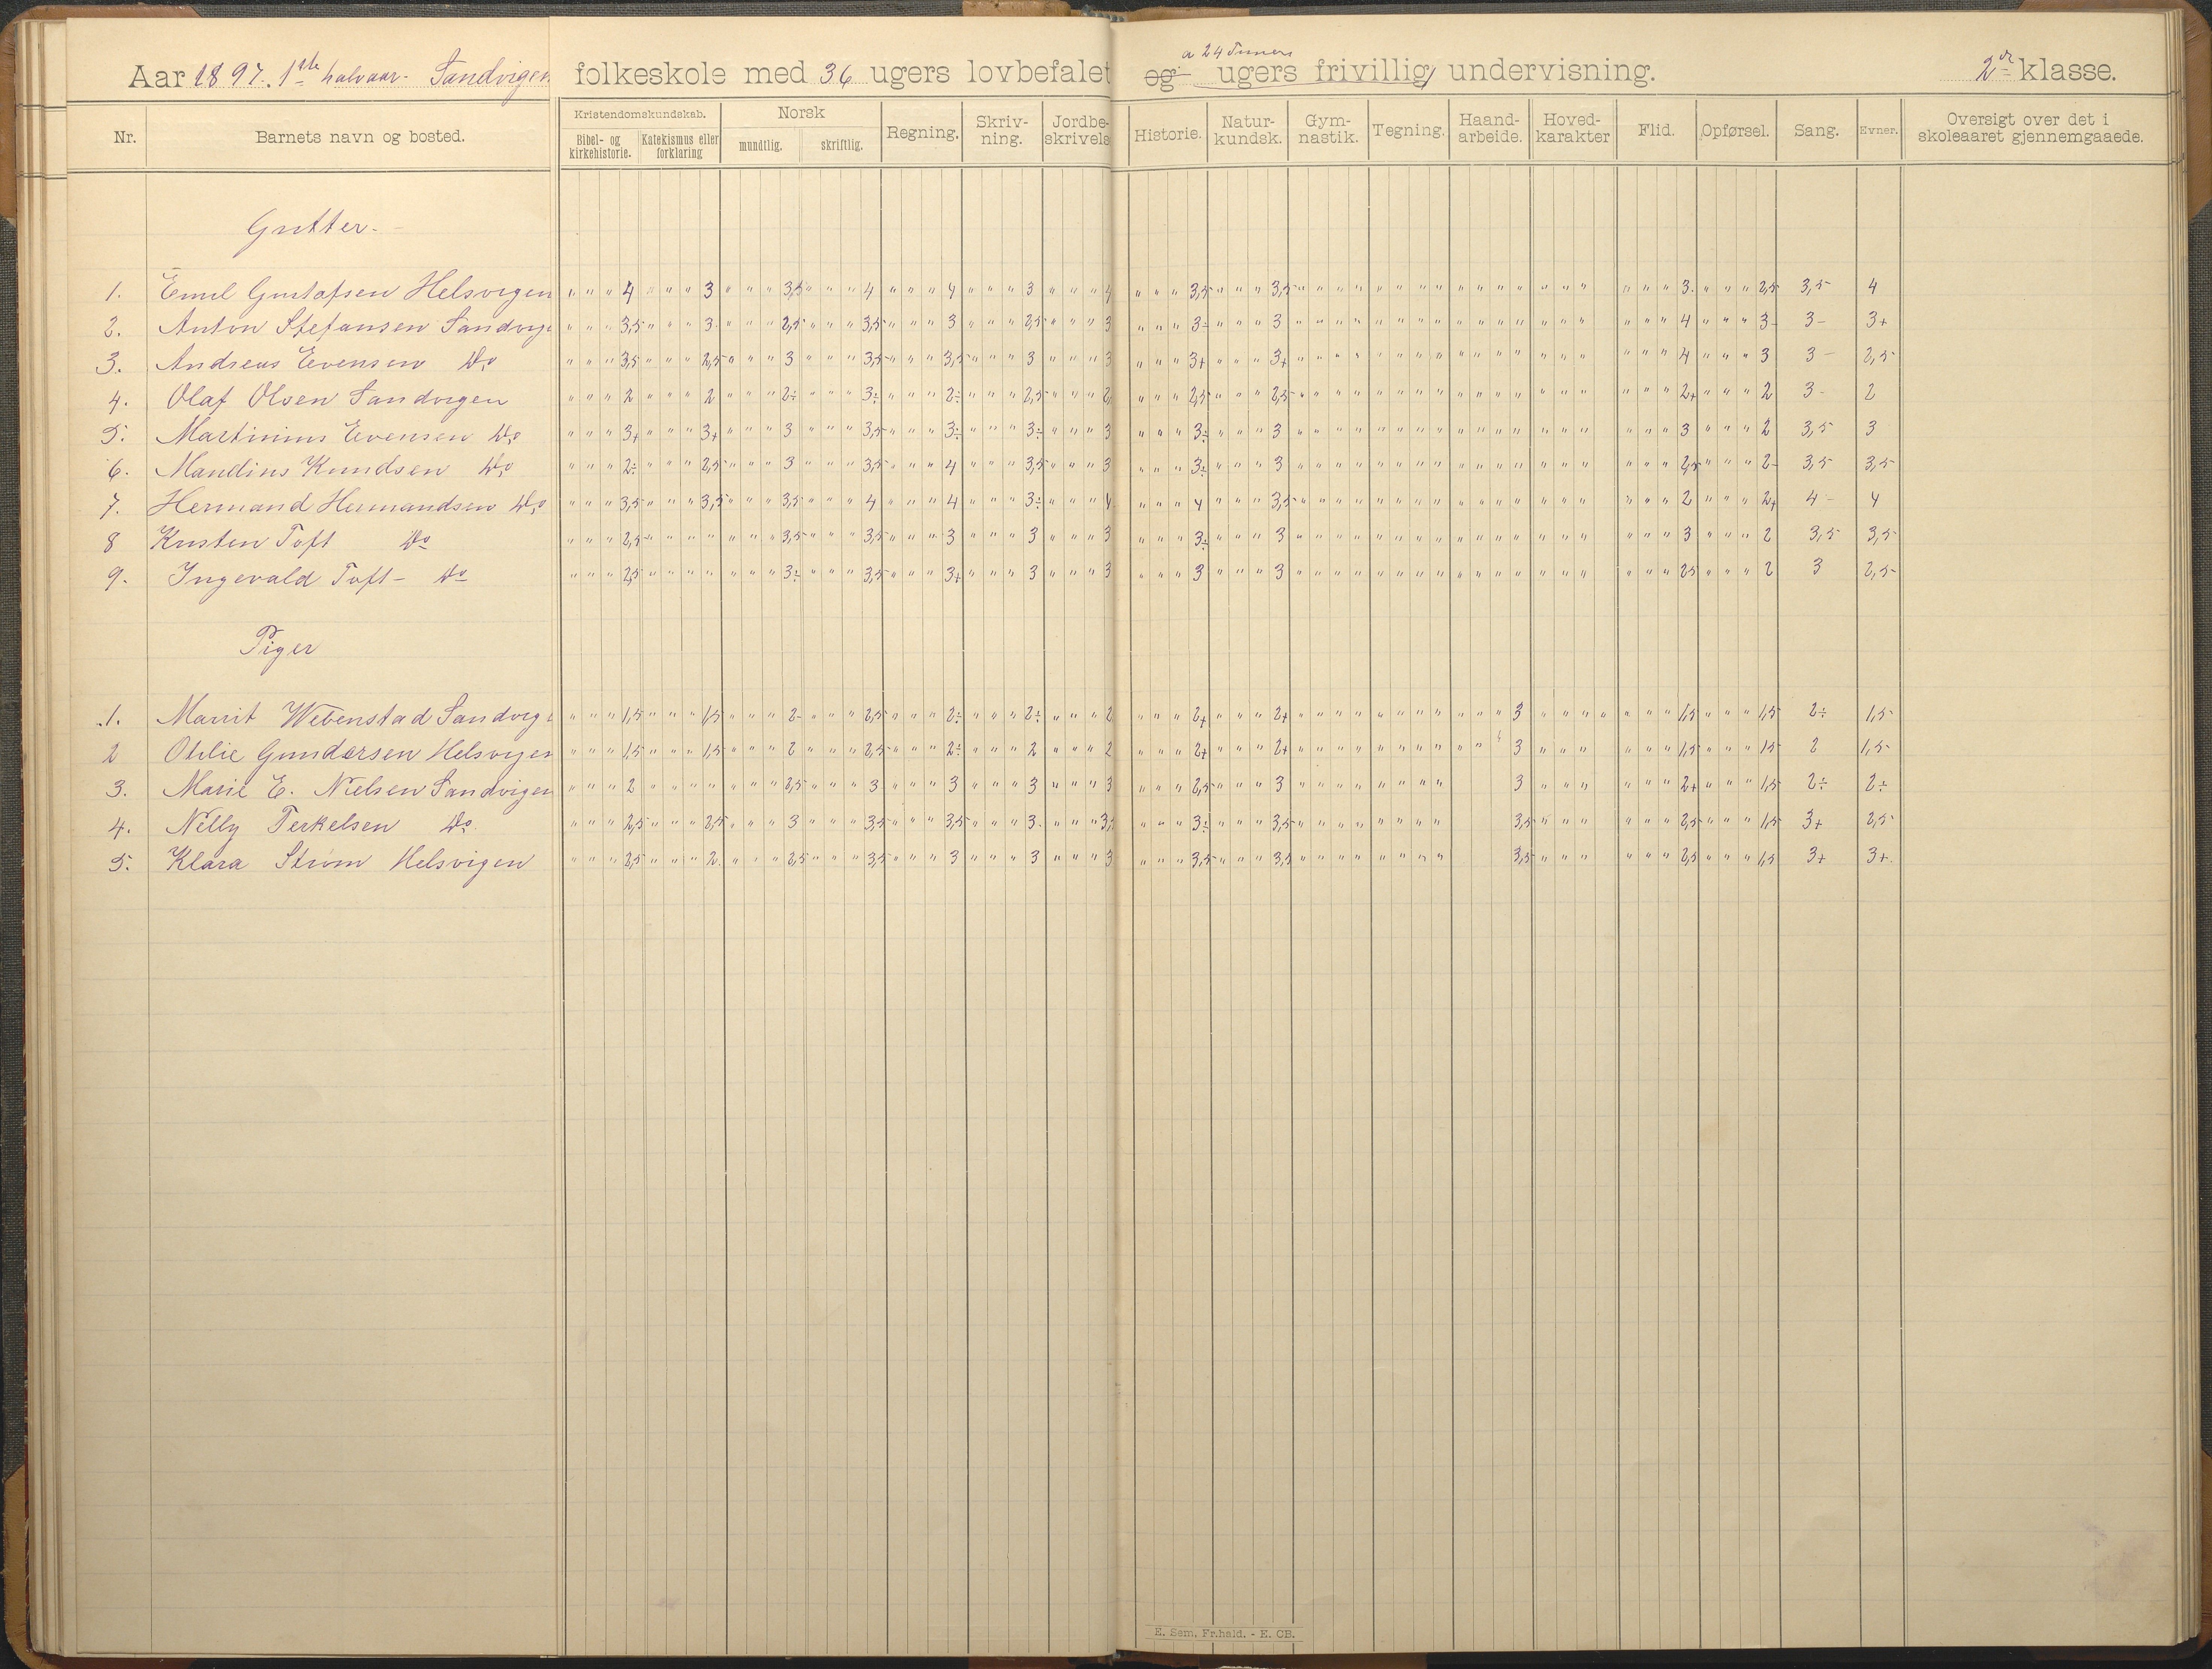 Aar 1897. 1ste halvaar. Sandvigen folkeskole med 36 ugers lovbefalet og a 24 Timers ugers frivillig undervisning. 2de klasse.
Nr. Barnets navn og bosted. Kristendomskundskab. Bibel- og kirkehistorie. Katekismus eller forklaring Norsk mundtlig. skriftlig. Regning. Skriv-ning. Jordbe-skrivels Historie. Natur-kundsk. Gym-nastik. Tegning. Haand-arbeide. Hoved-karakter Flid. Opførsel. Sang. Evner. Oversigt over det i skoleaaret gjennemgaaede.
Gutter.
1. Emil Gustafsen Helsvigen " " " 4 " " " 3 " " " 3,5 " " " 4 " " " 4 " " " 3 " " " 4 " " " 3,5 " " " 3,5 " " " " " " " " " " " " " " " " " " 3. " " " 2,5 3,5 4
2. Anton Stefansen Sandvige " " " 3,5 " " " 3. " " " 2,5 " " " 3,5 " " " 3 " " " 2,5 " " " 3 " " " 3÷ " " " 3 " " " " " " " " " " " " " " " " " " 4 " " " 3- 3- 3+
3. Andreas Evensen Do " " " 3,5 " " " 2,5 " " " 3 " " " 3,5 " " " 3,5 " " " 3 " " " 3 " " " 3+ " " " 3+ " " " " " " " " " " " " " " " " " " 4 " " " 3 3- 2,5
4. Olaf Olsen Sandvigen " " " 2 " " " 2 " " " 2÷ " " " 3÷ " " " 2÷ " " " 2,5 " " " 2 " " " 2,5 " " " 2,5 " " " " " " " " " " " " " " " " " " 2+ " " " 2 3- 2
5. Martinius Evensen Do " " " 3+ " " " 3+ " " " 3 " " " 3,5 " " " 3÷ " " " 3÷ " " " 3 " " " 3÷ " " " 3 " " " " " " " " " " " " " " " " " " 3 " " " 2 3,5 3
6. Maudius Knudsen Do " " " 2÷ " " " 2,5 " " " 3 " " " 3,5 " " " 4 " " " 3,5 " " " 3 " " " 3÷ " " " 3 " " " " " " " " " " " " " " " " " " 2,5 " " " 2- 3,5 3,5
7. Hermand Hermandsen Do " " " 3,5 " " " 3,5 " " " 3,5 " " " 4 " " " 4 " " " 3÷ " " " 4 " " " 4 " " " 3,5 " " " " " " " " " " " " " " " " " " 2 " " " 2+ 4- 4
8 Kristen Toft Do " " " 2,5 " " " " " " " 3,5 " " " 3,5 " " " 3 " " " 3 " " " 3 " " " 3÷ " " " 3 " " " " " " " " " " " " " " " " " " 3 " " " 2 3,5 3,5
9. Ingevald Toft - Do " " " 2,5 " " " " " " " 3÷ " " " 3,5 " " " 3+ " " " 3 " " " 3 " " " 3 " " " 3 " " " " " " " " " " " " " " " " " " 2,5 " " " 2 3 2,5
Piger
1. Marrit Webenstad Sandvige " " " 1,5 " " " 1,5 " " " 2- " " " 2,5 " " " 2÷ " " " 2÷ " " " 2 " " " 2+ " " " 2+ " " " " " " " " " " " 3 " " " " " " " 1,5 " " " 1,5 2÷ 1,5
2 Otilie Gundersen Helsvigen " " " 1,5 " " " 1,5 " " " 2 " " " 2,5 " " " 2÷ " " " 2 " " " 2 " " " 2+ " " " 2+ " " " " " " " " " " " 3 " " " " " " 1,5 " " " 1,5 2 1,5
3. Marie E. Nielsen Sandvigen " " " 2 " " " " " " " 2,5 " " " 3 " " " 3 " " " 3 " " " 3 " " " 2,5 " " " 3 " " " " " " " " 3 " " " " " " 2+ " " " 1,5 2÷ 2÷
4. Nelly Terkelsen Do. " " " 2,5 " " " 2,5 " " " 3 " " " 3,5 " " " 3,5 " " " 3. " " " 3,5 " " " 3÷ " " " 3,5 " " " " " " " " 3,5 " " " " " " 2,5 " " " 1,5 3+ 2,5
5. Klara Strøm Helsvigen " " " 2,5 " " " 2. " " " 2,5 " " " 3,5 " " " 3 " " " 3 " " " 3 " " " 3,5 " " " 3,5 " " " " " " " " 3,5 " " " " " " 2,5 " " " 1,5 3+ 3+.
E. Sem, Fr.hald. - E. CB.